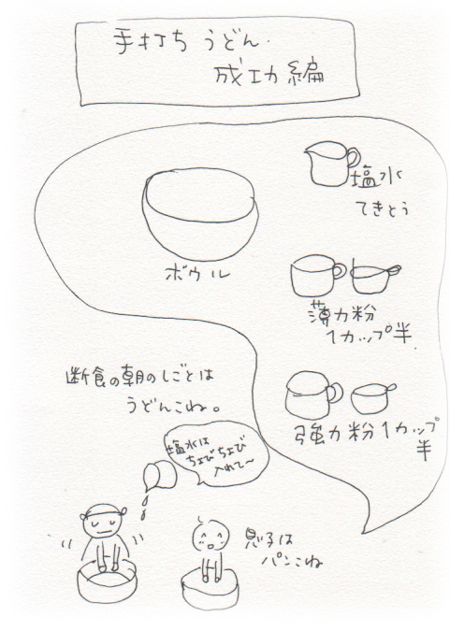 手打ちうどん.
成功編
塩水
てきとう
ボウル
薄力粉
1カップ半
強力粉1カップ
半
断食の朝のしごとは
うどんこね。
塩水は
ちょびちょび
入れて〜
息子は
パンこね